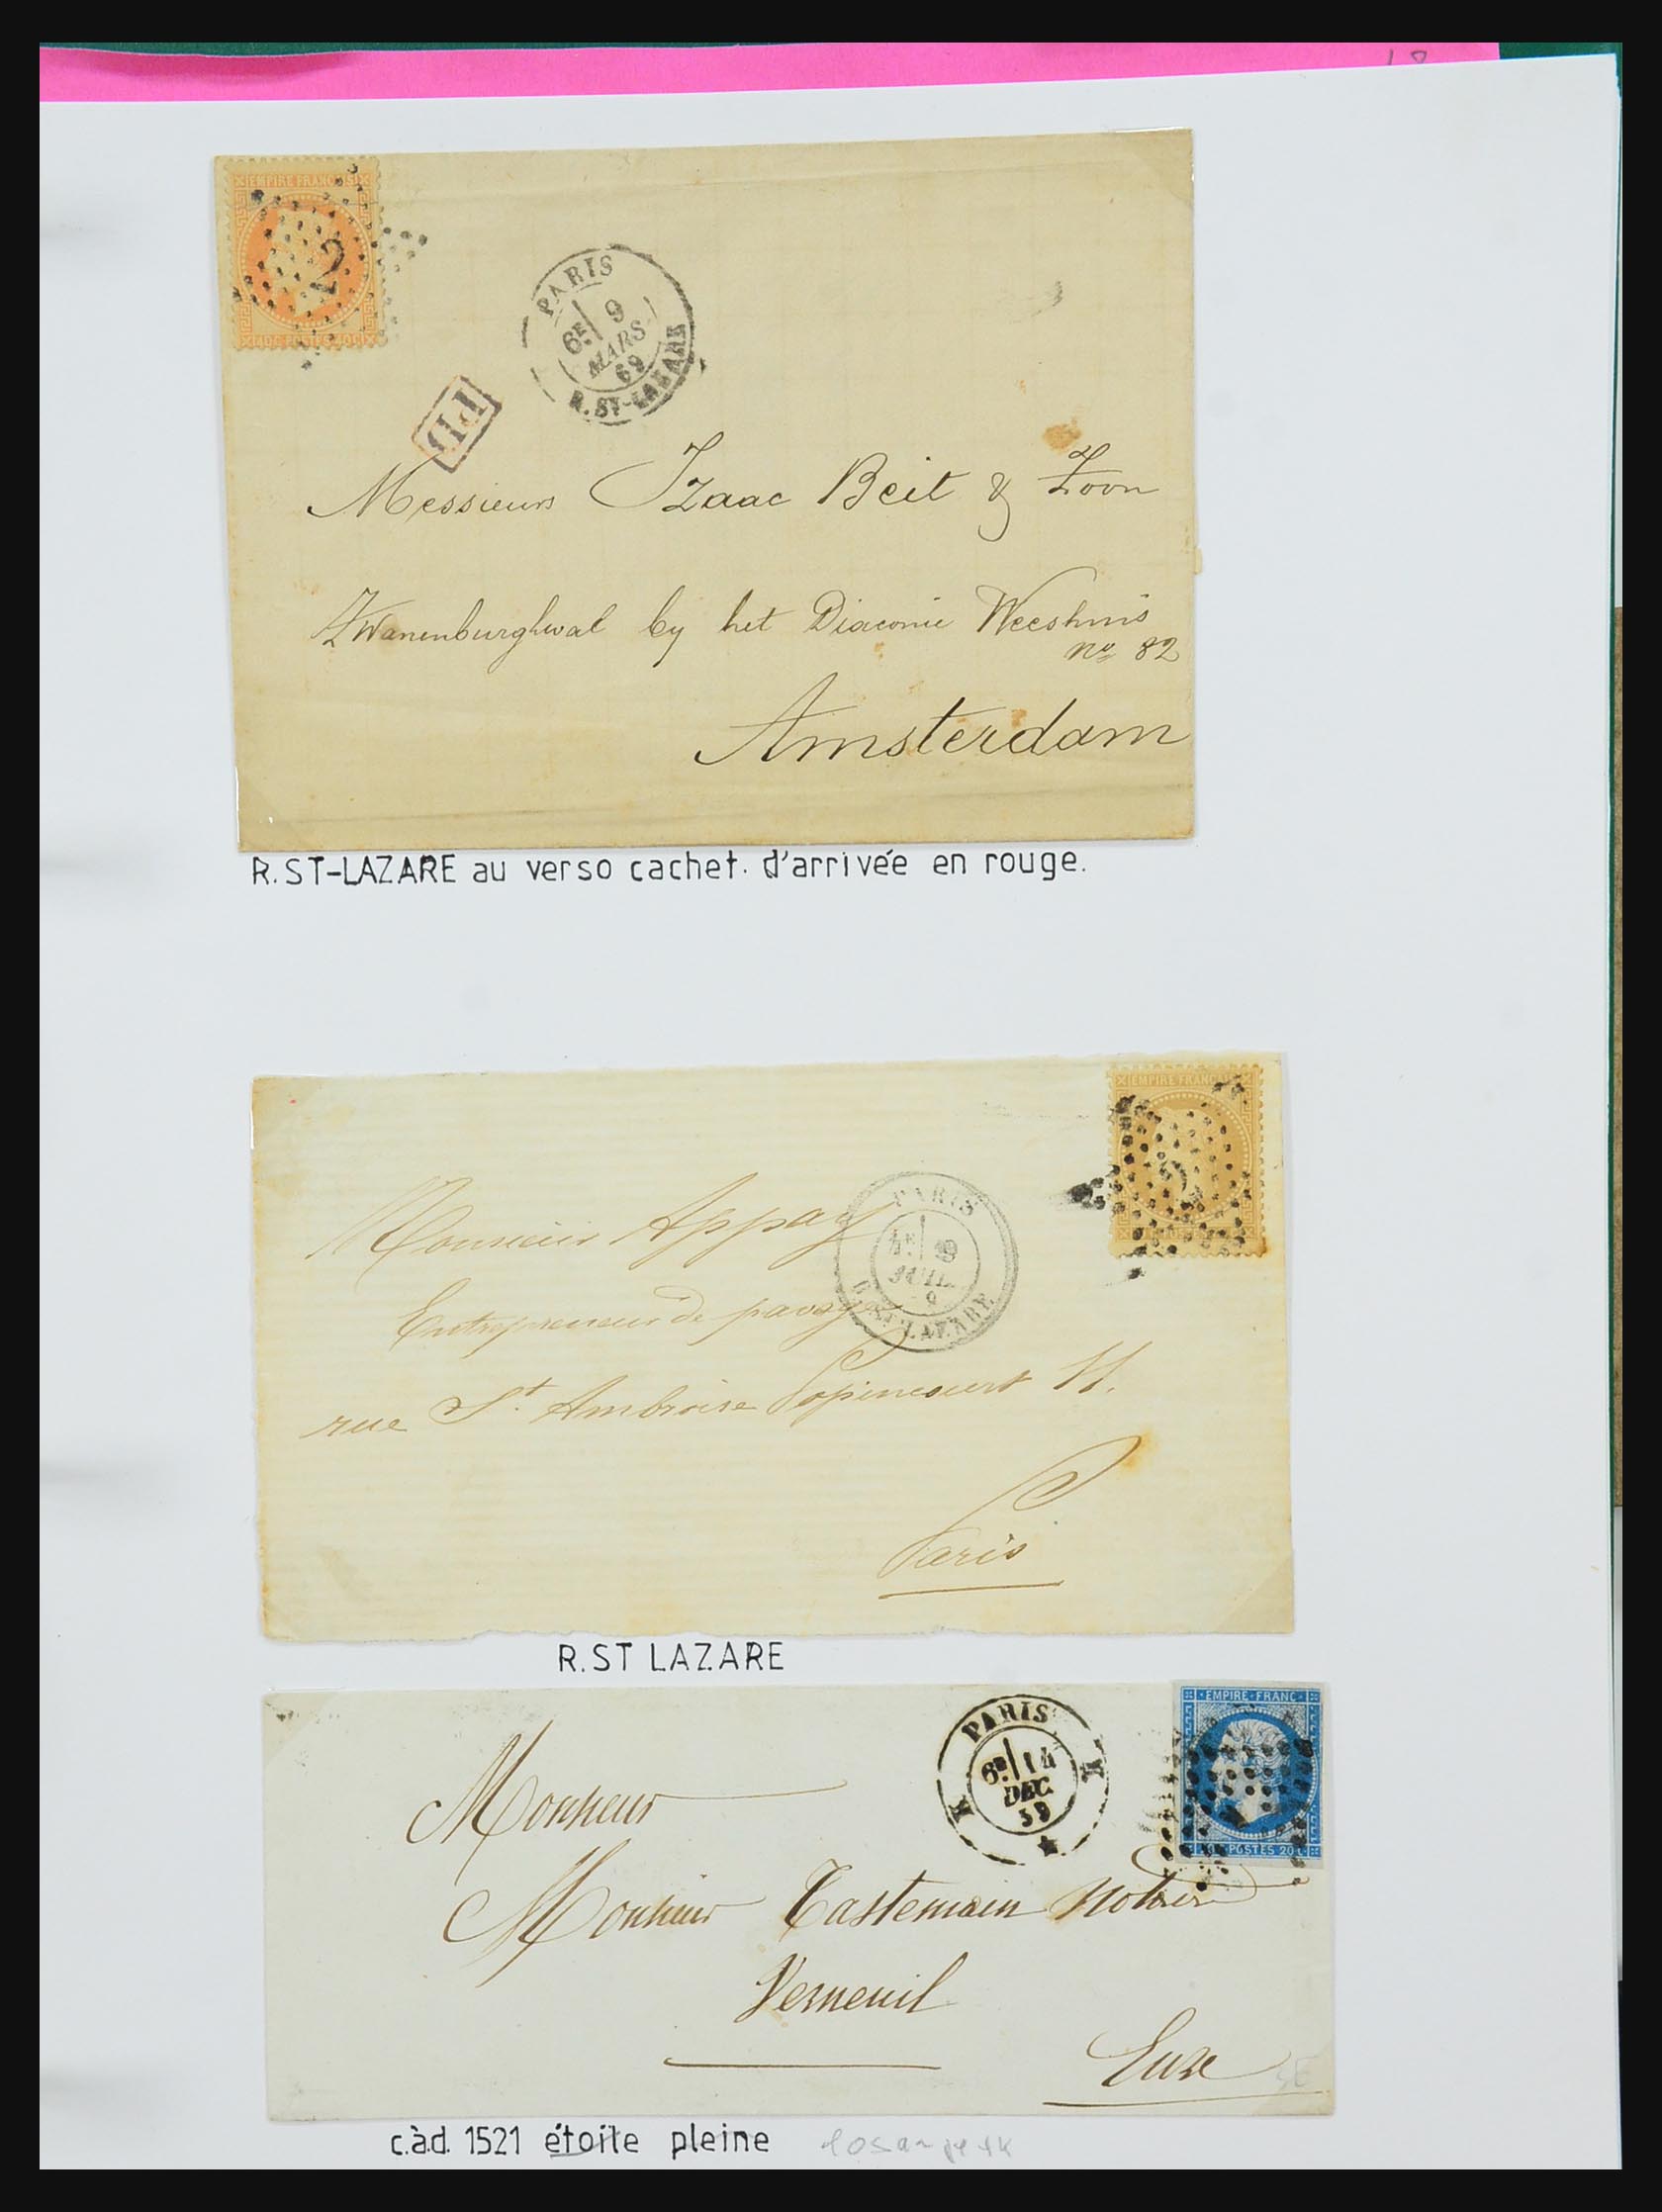 EMPIRE FRANÇAIS
40C POSTES 40C
2
PARIS
6E 9
MARS
69
R. ST-LAZARE
PD
Messieurs Izaac Beit & Zoon
Zwanenburghwal by het Diaconie Weeshuis
No 82
Amsterdam
R.ST-LAZARE au verso cachet. d'arrivée en rouge.
EMPIRE FRANÇAIS
2
PARIS
4E 19
JUIL.
R. ST LAZARE
Monsieur Appay
Entrepreneur de pavage
rue St. Ambroise Popincourt 11.
Paris
R.ST LAZARE
EMPIRE FRANC
POSTES 20 C
PARIS
6E 14
DEC.
59
K K
Monsieur
Monsieur Tastemain Notaire
Verneuil
Eure
c.à.d. 1521 étoile pleine